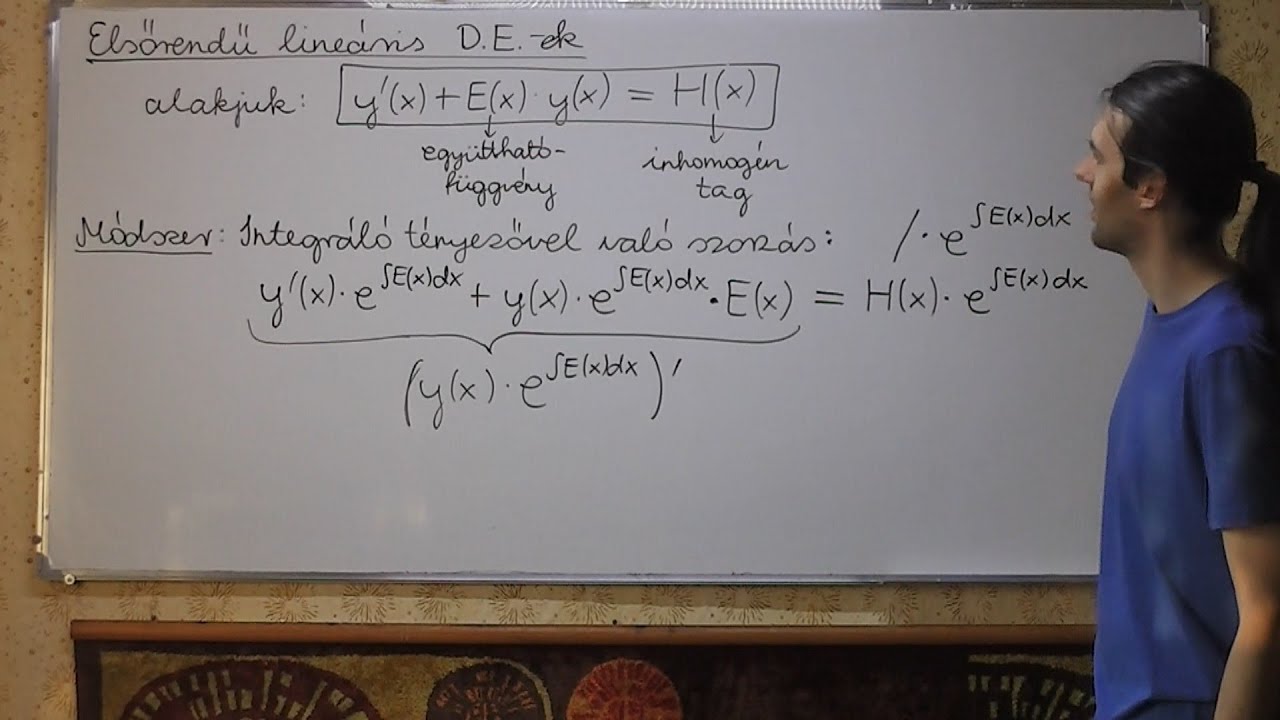 Elsőrendű lineáris D.E.-ek
alakjuk: y'(x) + E(x) · y(x) = H(x)
együttható- inhomogén
függvény tag
Módszer: Integráló tényezővel való szorzás: / · e^{∫E(x)dx}
y'(x) · e^{∫E(x)dx} + y(x) · e^{∫E(x)dx} · E(x) = H(x) · e^{∫E(x)dx}
(y(x) · e^{∫E(x)dx})'